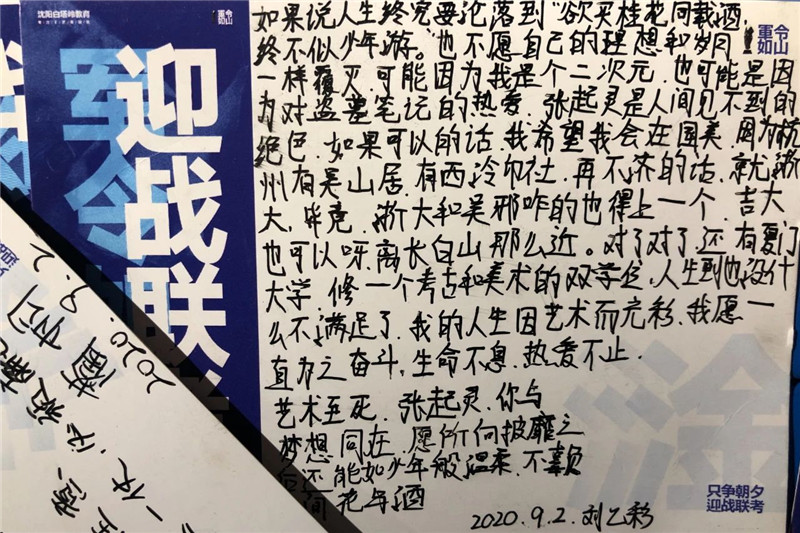 沈阳白塔岭教育
军令如山
迎战联考
如果说人生终究要沦落到“欲买桂花同载酒,
终不似少年游。”也不愿自己的理想和岁月
一样覆灭.可能因为我是个二次元.也可能是因
为对盗墓笔记的热爱.张起灵是人间见不到的
绝色.如果可以的话.我希望我会在国美.因为杭
州有吴山居.有西泠印社.再不济的话.就浙
大.毕竟.浙大和吴邪咋的也得占一个.吉大
也可以呀.离长白山那么近。对了对了.还有厦门
大学.修一个考古和美术的双学位.人生到也没什
么不满足了.我的人生因艺术而充彩.我愿一
直为之奋斗.生命不息.热爱不止.
艺术至死.张起灵.你与
梦想同在.愿所向披靡之
后还能如少年般温柔.不负
间花与酒
2020.9.2.刘乙彩
军令
如山
只争朝夕
迎战联考
2020.9.2